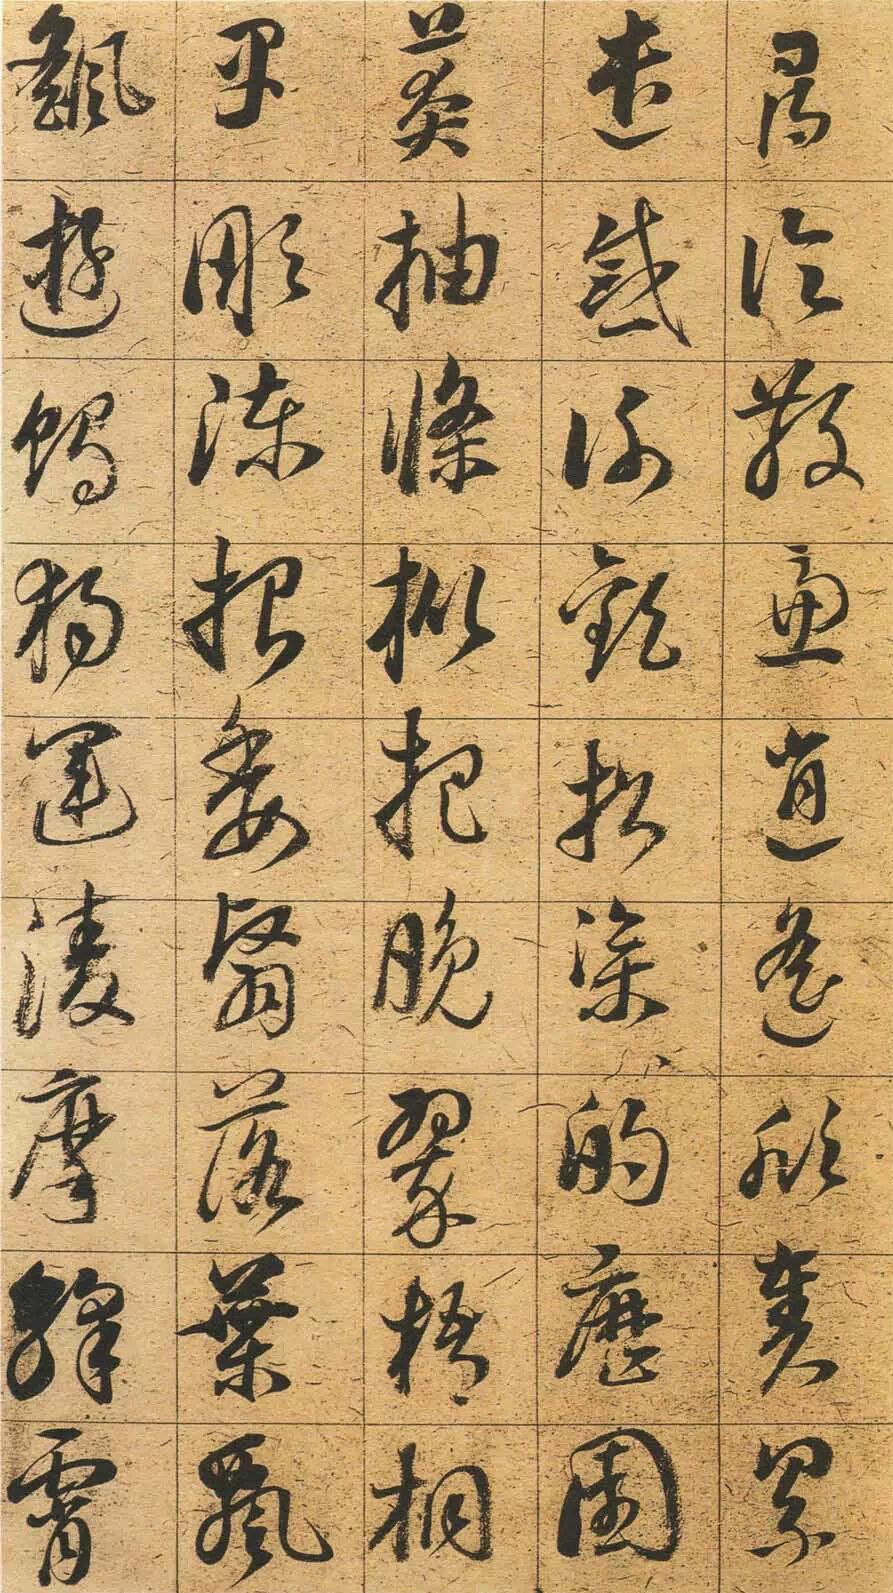 尋論散慮逍遙欣奏累
遣慼謝歡招渠的歷園
莽抽條枇杷晚翠梧桐
早彫陳根委翳落葉飄
颻遊鵾獨運淩摩絳霄